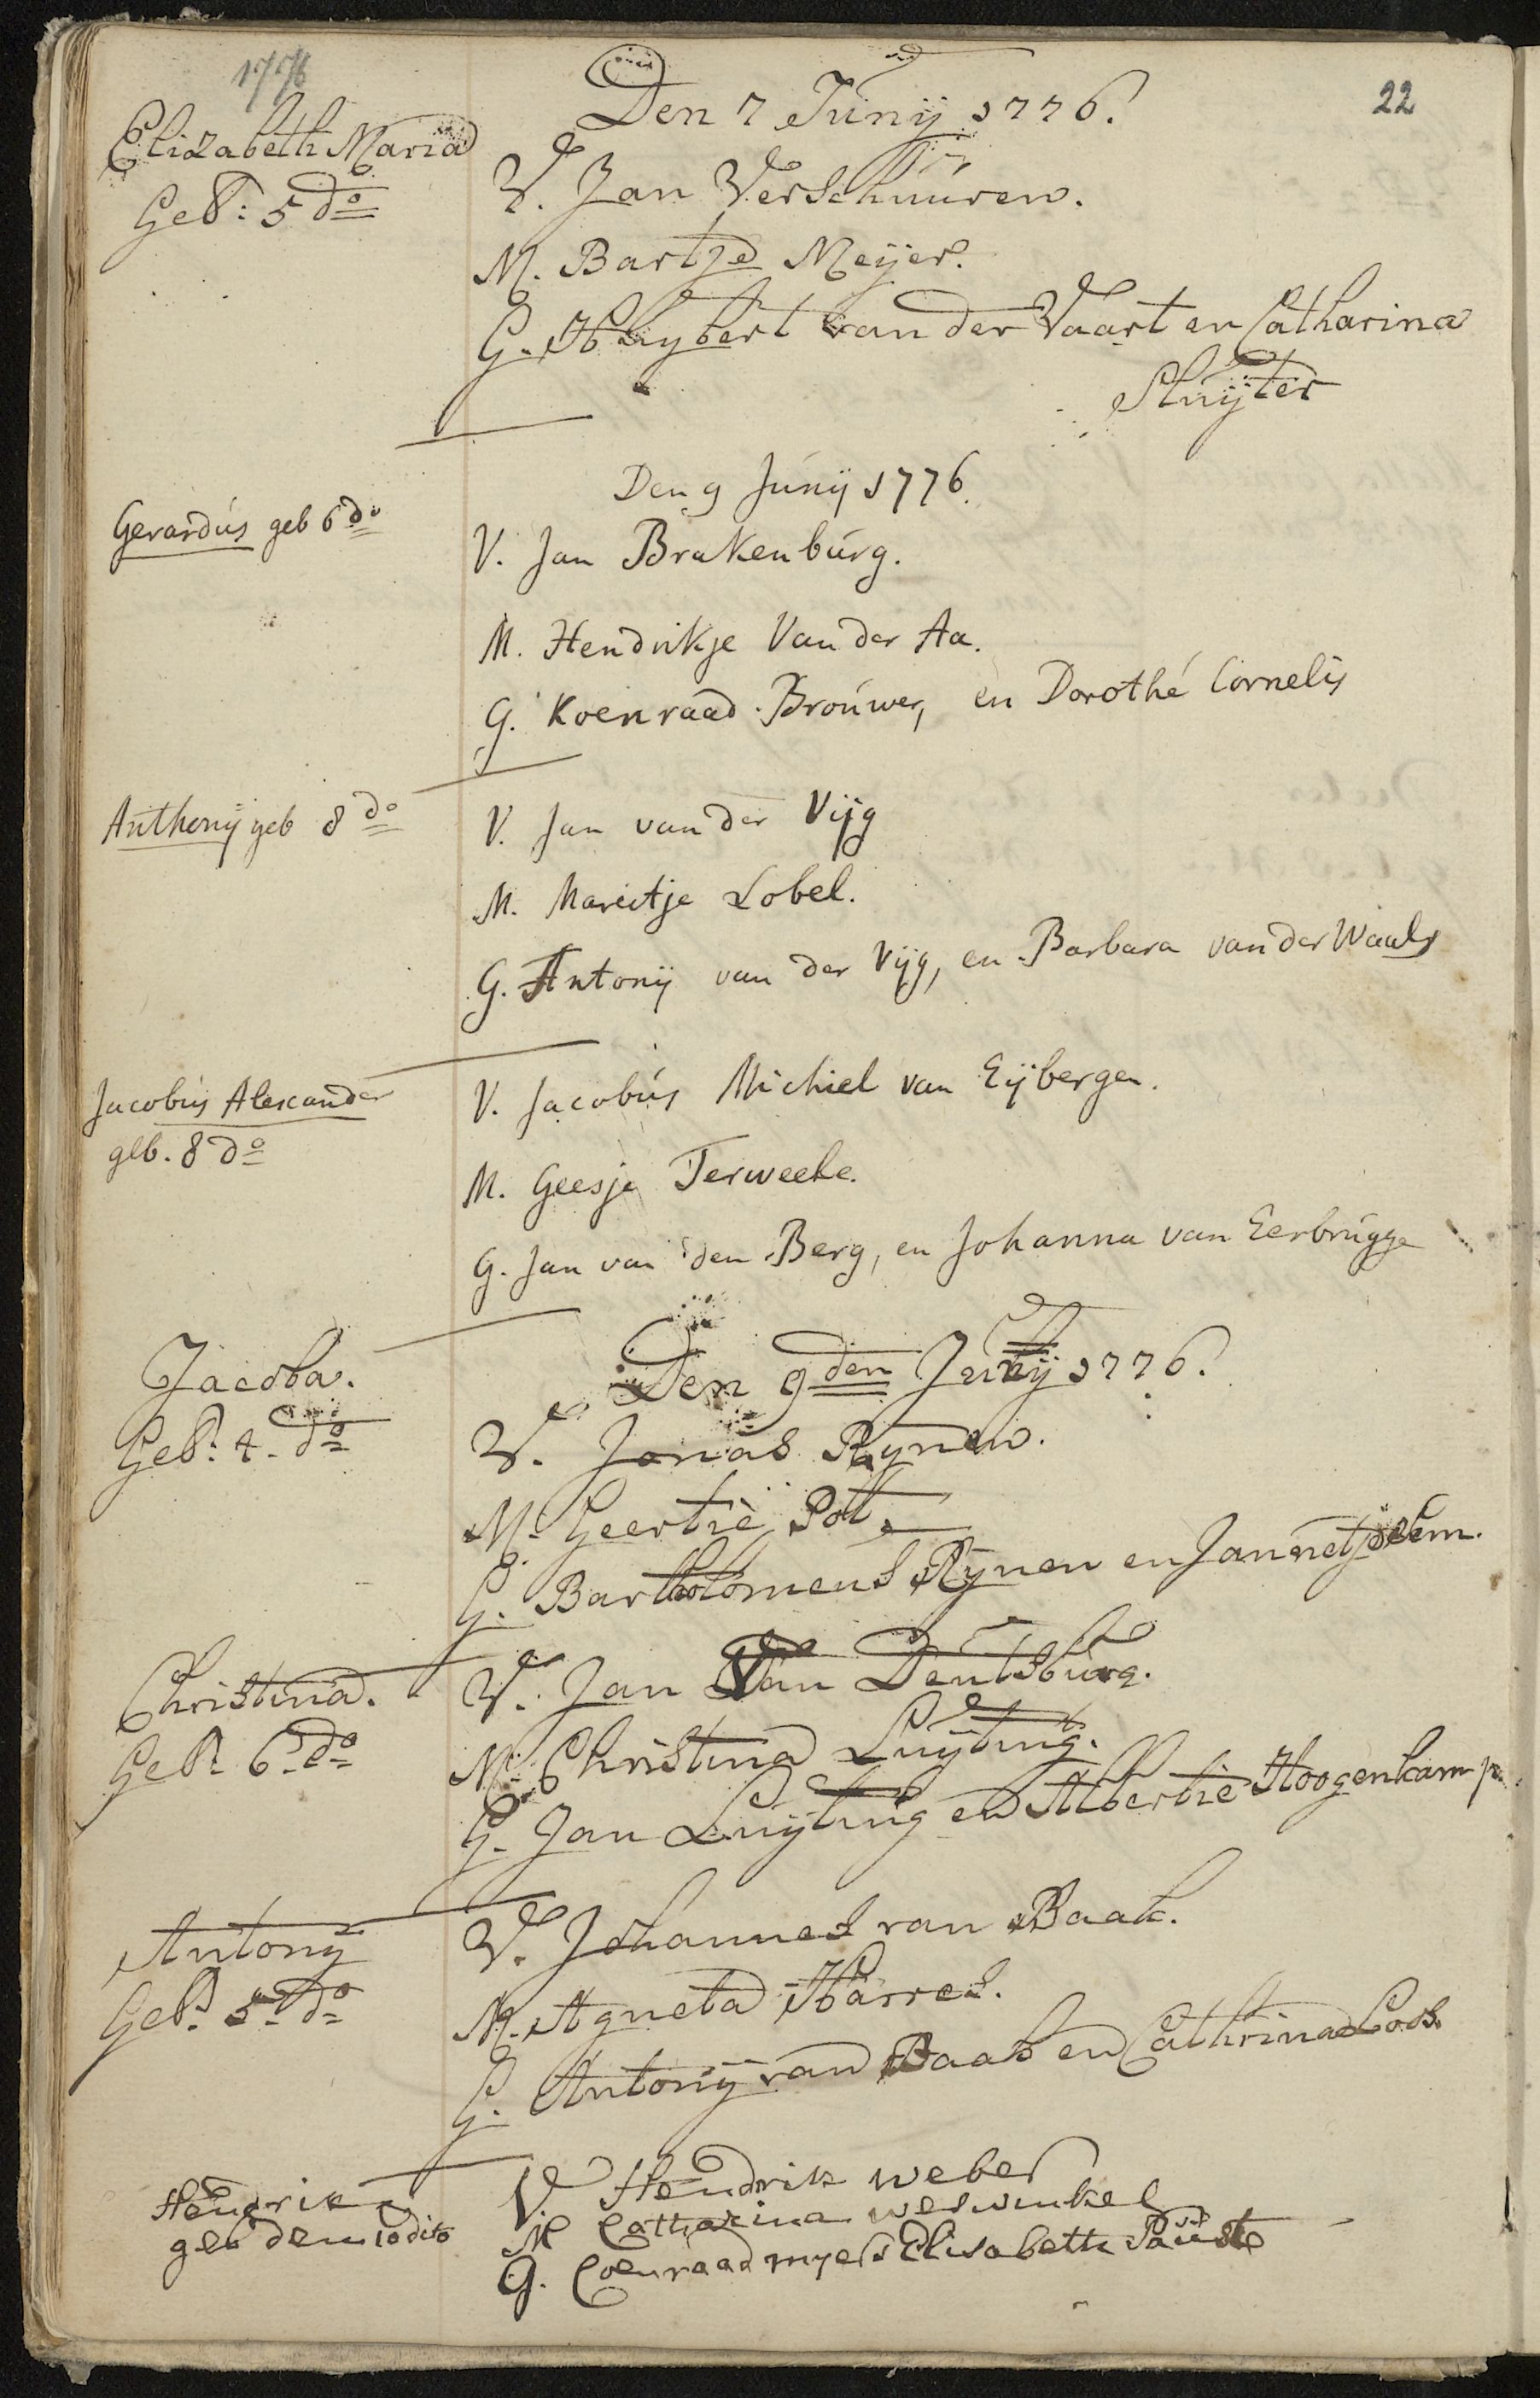 1776
22
Den 7 Junij 1776.
Elizabeth Maria
Geb: 5 do
V. Jan Verschuuren.
M. Bartje Meijer.
G. Huybert van der Vaart en Catharina
Sluijter
Den 9 Junij 1776.
Gerardus geb 6 do
V. Jan Brakenburg.
M. Hendrikje Van der Aa.
G. Koenraad Brouwer, en Dorothé Cornelis
Anthonij geb 8 do
V. Jan van der Vijg
M. Mareitje Lobel.
G. Antonij van der Vijg, en Barbara van der Waals
Jacobus Alexander
geb. 8 do
V. Jacobus Michiel van Eijbergen.
M. Geesje Terweele.
G. Jan van den Berg, en Johanna van Eerbrugge
Den 9den Junij 1776.
Jacoba.
Geb: 4 do
V. Jonas Rynen.
M. Geertie Pot.
G. Bartholomeus Rynen en Jannetje
Christina.
Geb: 6 do
V. Jan Van Deutsburg.
M. Christina Luijting.
G. Jan Luijting en Albertie Hoogenkamp.
Antonij
Geb: 5 do
V. Johannes van Baak.
M. Agneta Harres.
G. Antonij van Baak en Cathrina Loos.
Hendrik
geb den 10 dito
V. Hendrik weber
M Catharina weswinkel
G. Coenraad myer Elisabeth